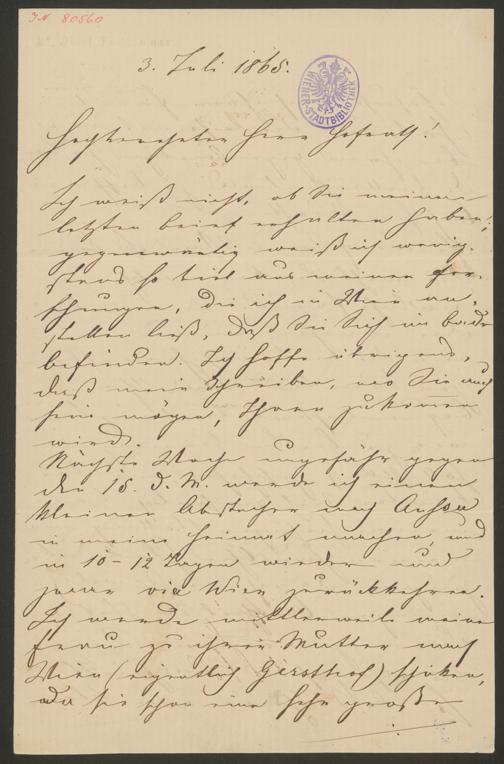 JN 80560
3. Juli 1865.
WIENER STADTBIBLIOTHEK
Hochverehrter Herr Hofrath!
Ich weiß nicht, ob Sie meinen
letzten Brief erhalten haben;
gegenwärtig weiß ich wenig-
stens so viel aus meinen For-
schungen, die ich in Wien an-
stellen ließ, daß Sie Sich im Bade
befinden. Ich hoffe übrigens,
daß mein Schreiben, wo Sie auch
sein mögen, Ihnen zukommen
wird.
Nächste Woche ungefähr gegen
den 15. d. M. werde ich einen
kleinen Abstecher nach
in meine Heimat machen, und
in 10-12 Tagen wieder und
zwar via Wien zurückkehren.
Ich werde mittlerweile meine
Frau zu ihrer Mutter nach
Wien (eigentlich Gersthof) schicken,
da sie schon eine sehr große